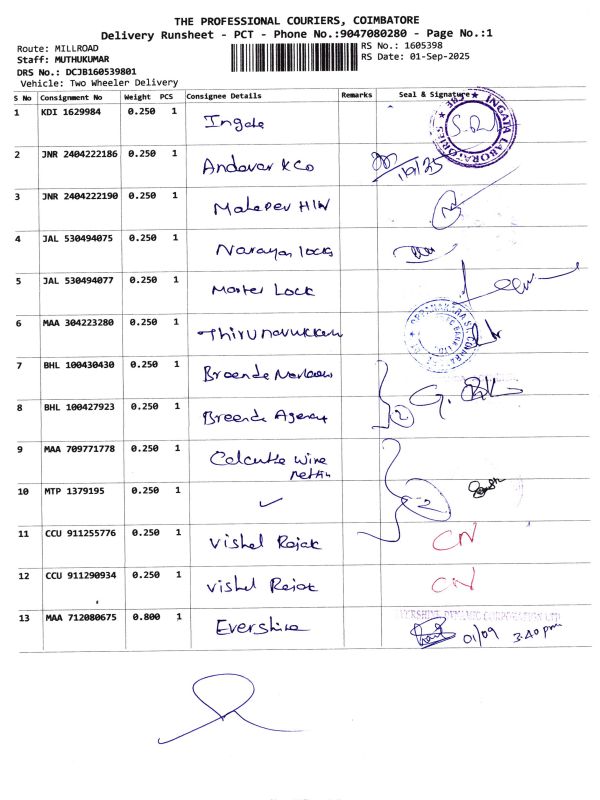 THE PROFESSIONAL COURIERS, COIMBATORE
Delivery Runsheet - PCT - Phone No.:9047080280 - Page No.:1
Route: MILLROAD
Staff: MUTHUKUMAR
DRS No.: DCJB160539801
Vehicle: Two Wheeler Delivery
RS No.: 1605398
RS Date: 01-Sep-2025
S No Consignment No Weight PCS Consignee Details Remarks Seal & Signature
1 KDI 1629984 0.250 1 Ingate
INGATA LABORATORIES
2 JNR 2404222186 0.250 1 Andavar & Co 1/9/25
3 JNR 2404222190 0.250 1
4 JAL 530494075 0.250 1 Narayan locks
5 JAL 530494077 0.250 1 Master Lock
6 MAA 304223280 0.250 1 Thirunavukkarau
7 BHL 100430430 0.250 1
8 BHL 100427923 0.250 1 Agency 2
9 MAA 709771778 0.250 1 Calcutta wire
netting
10 MTP 1379195 0.250 1 ✓ 2
11 CCU 911255776 0.250 1 Vishal CN
12 CCU 911290934 0.250 1 Vishal CN
13 MAA 712080675 0.800 1 Evershine
01/09 3.40 pm